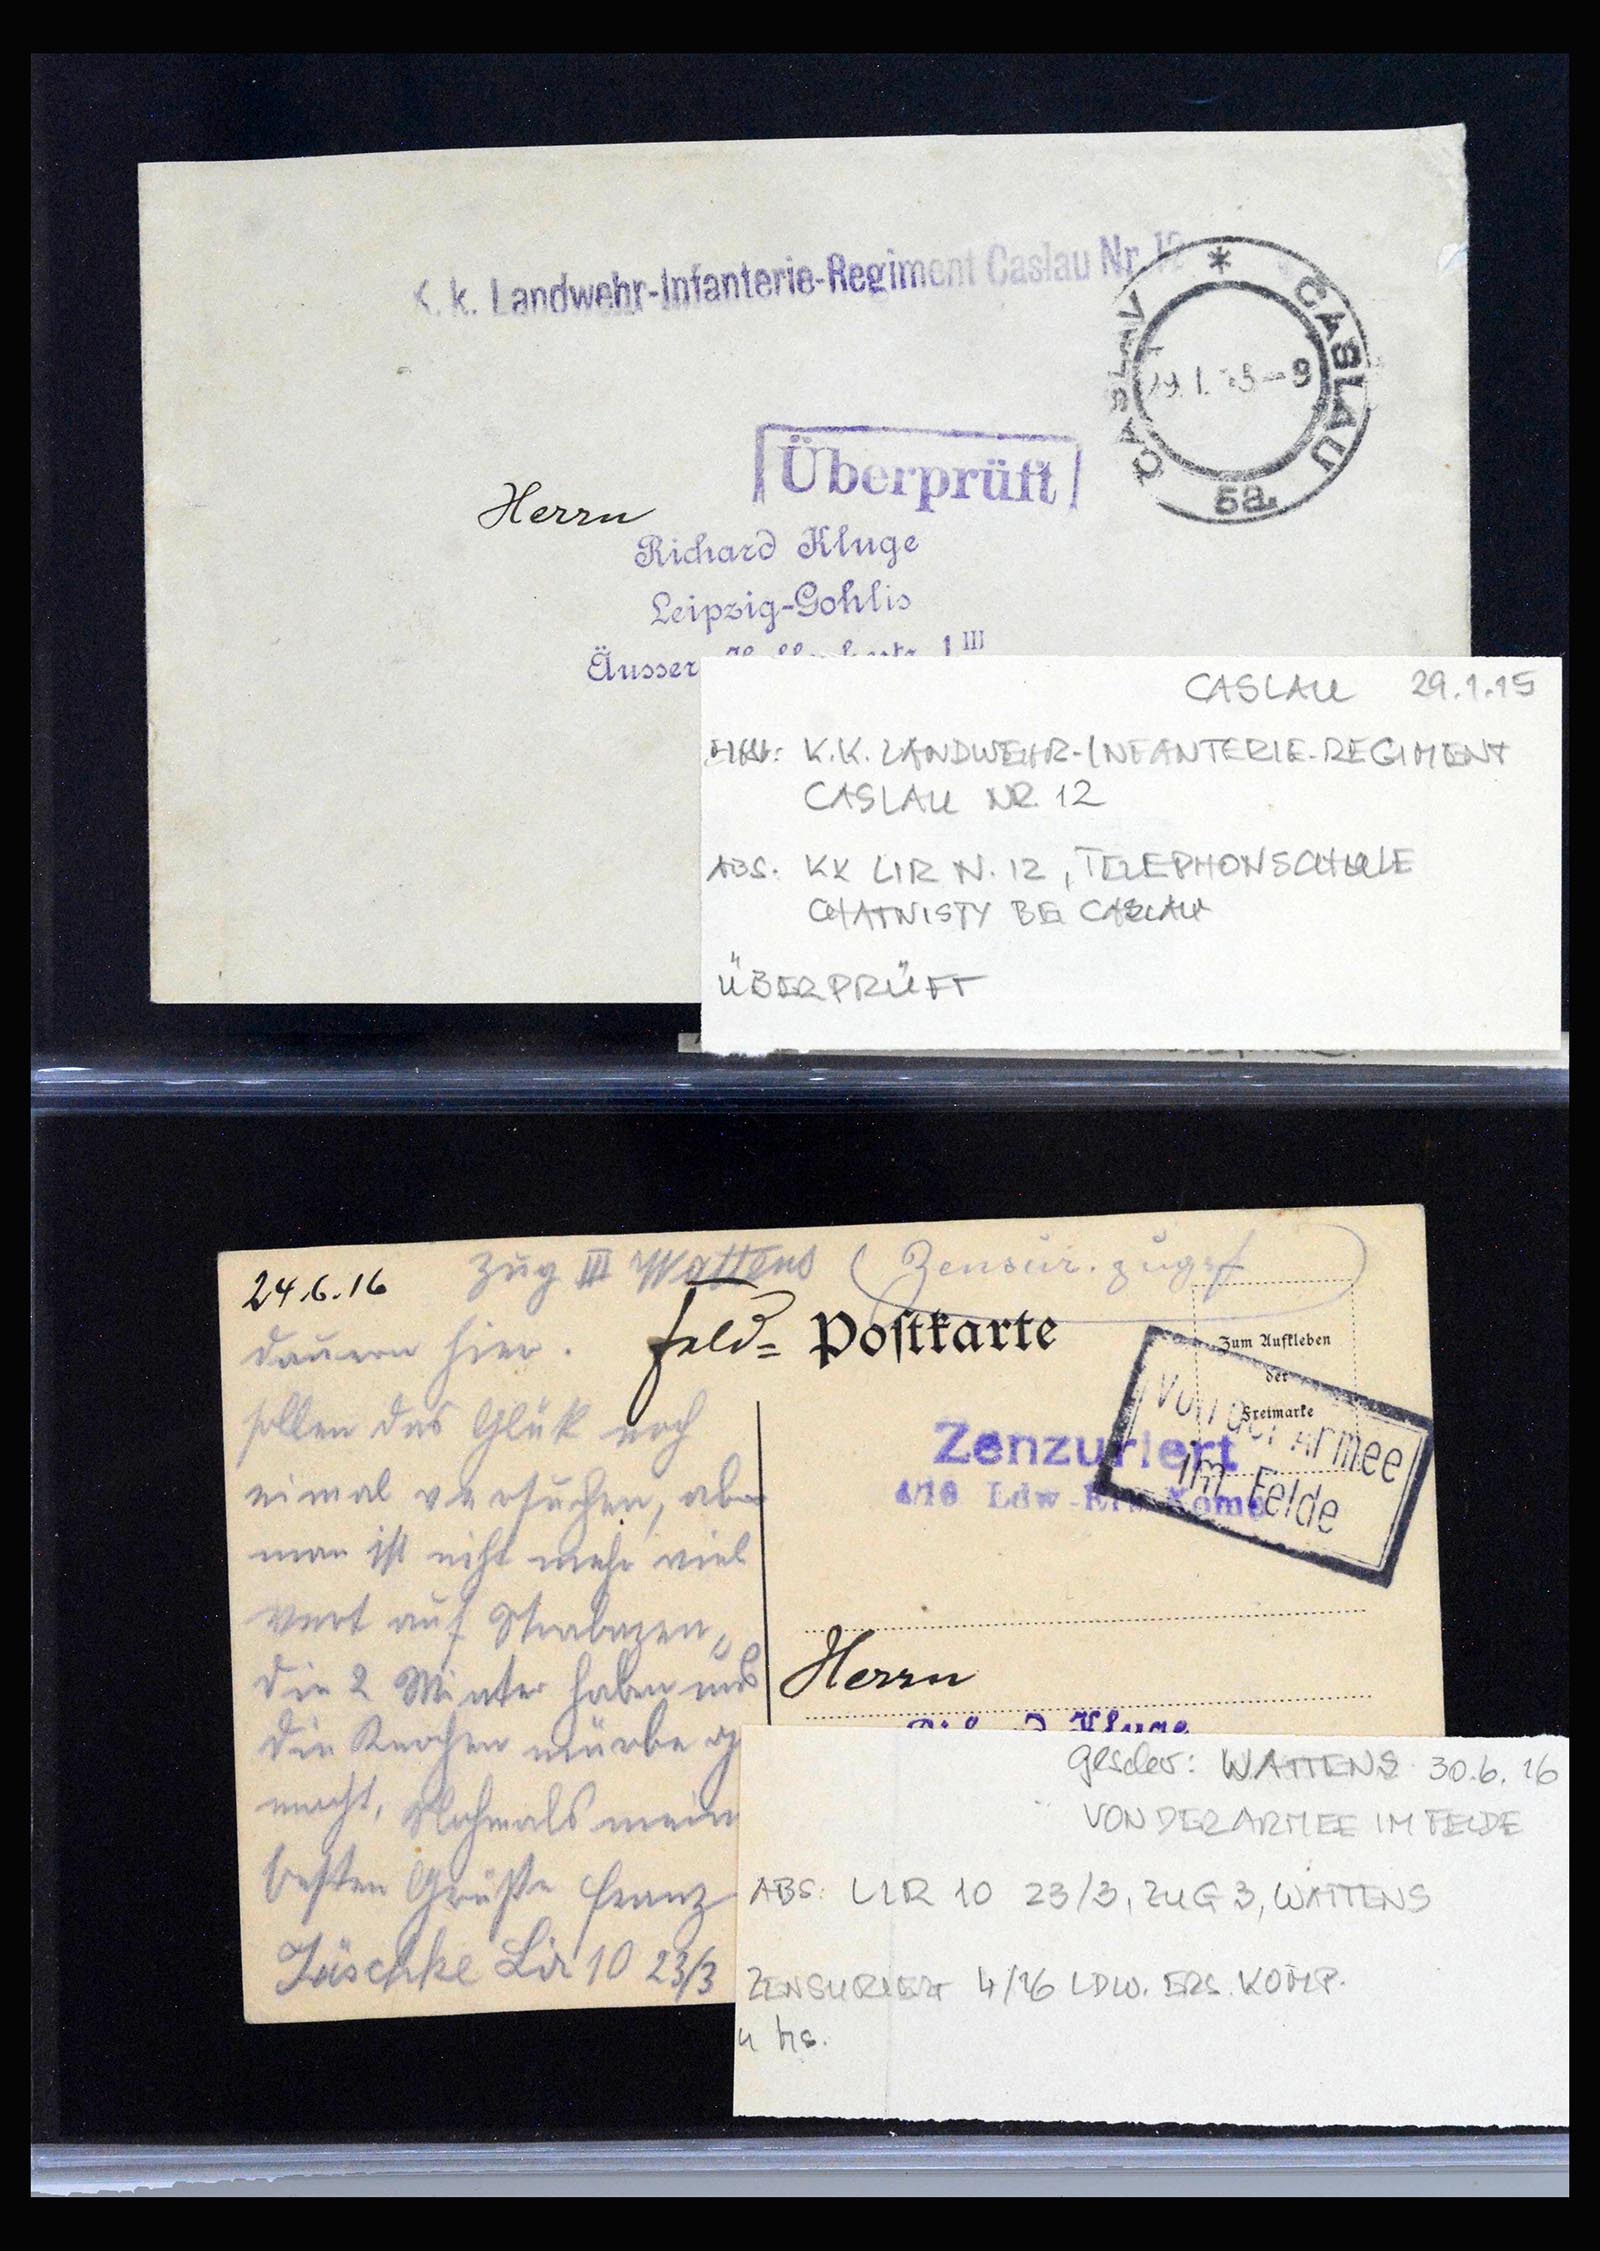 K. k. Landwehr-Infanterie-Regiment Caslau Nr. 12
* CASLAU
ČASLAV
29. I. 15-9
5a.
Überprüft
Herrn
Richard Kluge
Leipzig-Gohlis
Äusser
1 III
CASLAU 29.1.15
K.K. LANDWEHR-INFANTERIE-REGIMENT
CASLAU NR. 12
ABS. KK LIR N. 12, TELEPHONSCHULE
CHATNISTY BEI CASLAU
ÜBERPRÜFT
24.6.16 Zug III Wattens
Zensur.
dauern hier.
Feld= Postkarte
Zum Aufkleben
der
Freimarke
Von der Armee
Im Felde
Zenzuriert
4/16 Ldw-Ers. Komp
sollen das Glük noch
einmal versuchen, aber
man ist niht mehr viel
wert auf Strabazen,
die 2 Winter haben uns
die Knochen mürbe ge
macht. Nochmals mein
besten Grüße Franz
Jäschke Lir 10 23/3
Herrn
Richard Kluge
WATTENS 30.6.16
VON DER ARMEE IM FELDE
ABS: LIR 10 23/3, ZUG 3, WATTENS
ZENSURIERT 4/16 LDW. ERS. KOMP.
u hs.